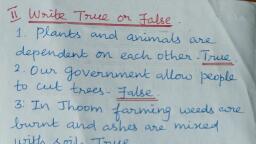 II Write True or False.
1. Plants and animals are
dependent on each other. True
2. Our government allow people
to cut trees. False
3. In Jhoom farming weeds are
burnt and ashes are mixed
with soil. True